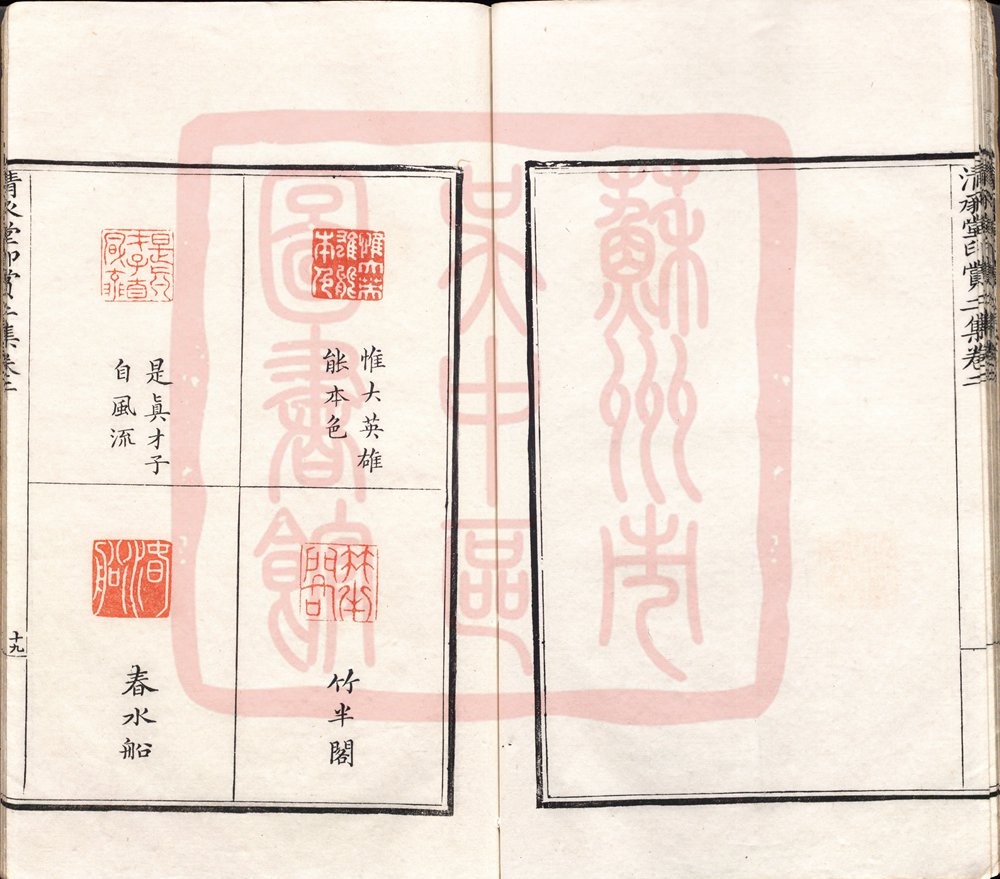 清承堂印賞二集卷二
惟大英雄
能本色
是眞才子
自風流
竹半閣
春水船
清承堂印賞二集卷二
十九
蘇州市
吴中區
圖書館